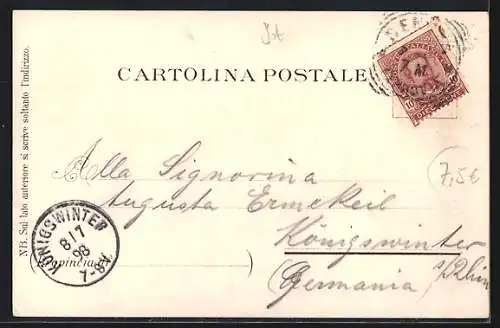 J.A
CARTOLINA POSTALE
NB. Sul lato anteriore si scrive soltanto l'indirizzo.
Alla Signorina
Augusta Ermekeil
Königswinter
a/Rhein
Germania
(Provincia
)
KÖNIGSWINTER
8/7
98
7-8
10
7,5€